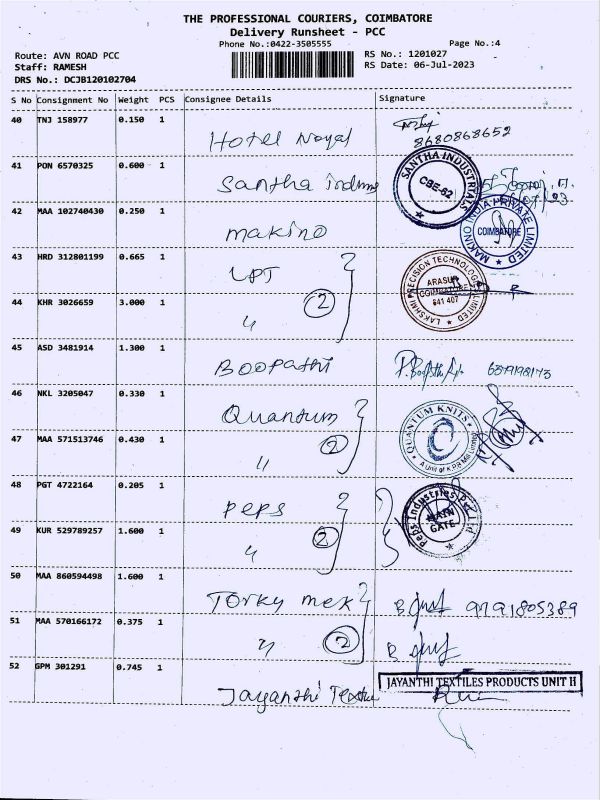 THE PROFESSIONAL COURIERS, COIMBATORE
Delivery Runsheet - PCC
Phone No.:0422-3505555
Page No.:4
Route: AVN ROAD PCC
RS No.: 1201027
Staff: RAMESH
RS Date: 06-Jul-2023
DRS No.: DCJB120102704
S No Consignment No Weight PCS Consignee Details Signature
40 TNJ 158977 0.150 1
Hotel Noyal 8680868652
41 PON 6570325 0.600 1
Santha SANTHA INDUSTRIALS CBE-62
42 MAA 102740430 0.250 1
makino MAKINO INDIA PRIVATE LIMITED COIMBATORE
43 HRD 312801199 0.665 1
LPT LAKSHMI PRECISION TECHNOLOGIES LIMITED ARASUR COIMBATORE 641 407
44 KHR 3026659 3.000 1
〃 2
45 ASD 3481914 1.300 1
Boopathi
46 NKL 3205047 0.330 1
Quantum QUANTUM KNITS A Unit of K.P.R Mill Limited
47 MAA 571513746 0.430 1
〃 2
48 PGT 4722164 0.205 1
Peps Peps Industries Pvt Ltd MAIN GATE
49 KUR 529789257 1.600 1
〃 2
50 MAA 860594498 1.600 1
Torky mek 9791805389
51 MAA 570166172 0.375 1
〃 2
52 GPM 301291 0.745 1
Jayanthi JAYANTHI TEXTILES PRODUCTS UNIT II